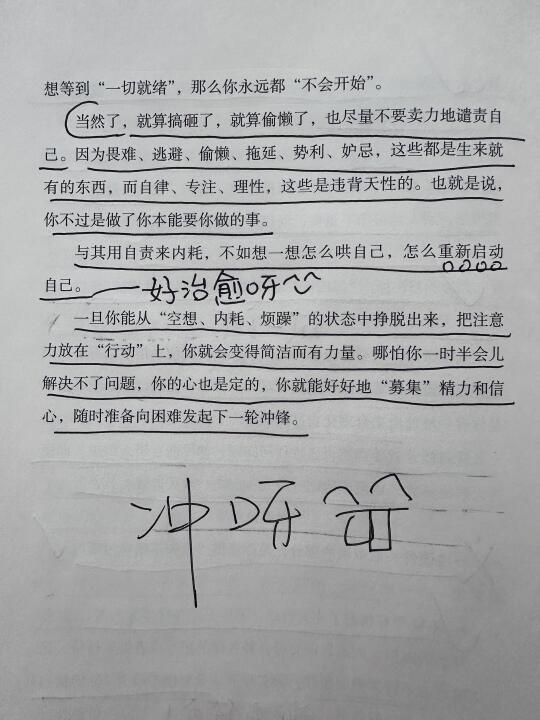 想等到“一切就绪”，那么你永远都“不会开始”。
当然了，就算搞砸了，就算偷懒了，也尽量不要卖力地谴责自
己。因为畏难、逃避、偷懒、拖延、势利、妒忌，这些都是生来就
有的东西，而自律、专注、理性，这些是违背天性的。也就是说，
你不过是做了你本能要你做的事。
与其用自责来内耗，不如想一想怎么哄自己，怎么重新启动
自己。——好治愈呀^^
一旦你能从“空想、内耗、烦躁”的状态中挣脱出来，把注意
力放在“行动”上，你就会变得简洁而有力量。哪怕你一时半会儿
解决不了问题，你的心也是定的，你就能好好地“募集”精力和信
心，随时准备向困难发起下一轮冲锋。
冲呀